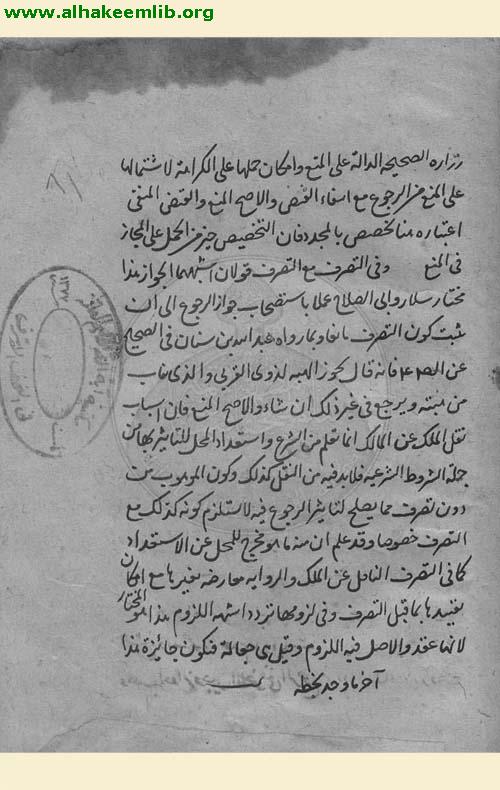 www.alhakeemlib.org
زراره الصحيحه الدالة على المنع وامكان حملها على الكراهة لاشتمالها
على المنع من الرجوع مع انتفاء القبض والاصح المنع والقبض المنفى
اعتباره هنا تخصص بالمجدد فان التخصيص خير من الحمل على المجاز
فى المنع وفى التصرف مع التصرف قولان اشبههما الجواز هذا
مختار سلار وابى الصلاح عملا باستصحاب جواز الرجوع الى ان
يثبت كون التصرف مانعا وبما رواه عبد الله بن سنان فى الصحيح
عن الصادق فانه قال تجوز الهبه لذوى القربى والذى يثاب
من هبته ويرجع فى غير ذلك ان شاء والاصح المنع فان اسباب
نقل الملك عن المالك انما تعلم من الشرع واستعداد المحل للتاثير بها من
جملة الشروط الشرعيه فلابد فيه من النقل كذلك وكون الموهوب من
دون تصرف مما يصلح لتاثير الرجوع فيه لا يستلزم كونه كذلك مع
التصرف خصوصا وقد علم ان منه ما هو مخرج للمحل عن الاستعداد
كما فى التصرف الناقل عن الملك والرواية معارضه بغيرها مع امكان
تقييدها بما قبل التصرف وفى لزومها تردد اشبهه اللزوم هذا هو المختار
لانها عقد والاصل فيه اللزوم وقيل هى جعالة فتكون جائزة هذا
آخر ما وجد بخطه